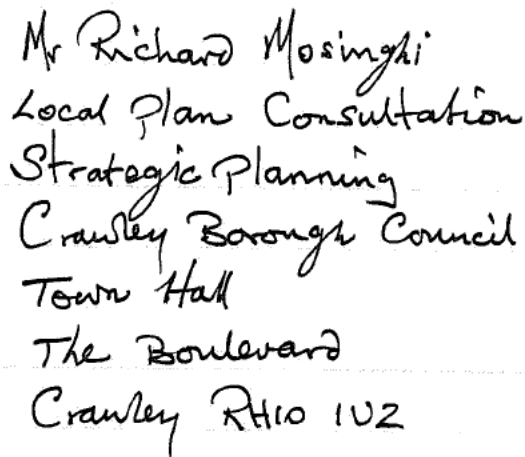 Mr Richard Mosinghi
Local Plan Consultation
Strategic Planning
Crawley Borough Council
Town Hall
The Boulevard
Crawley RH10 1UZ